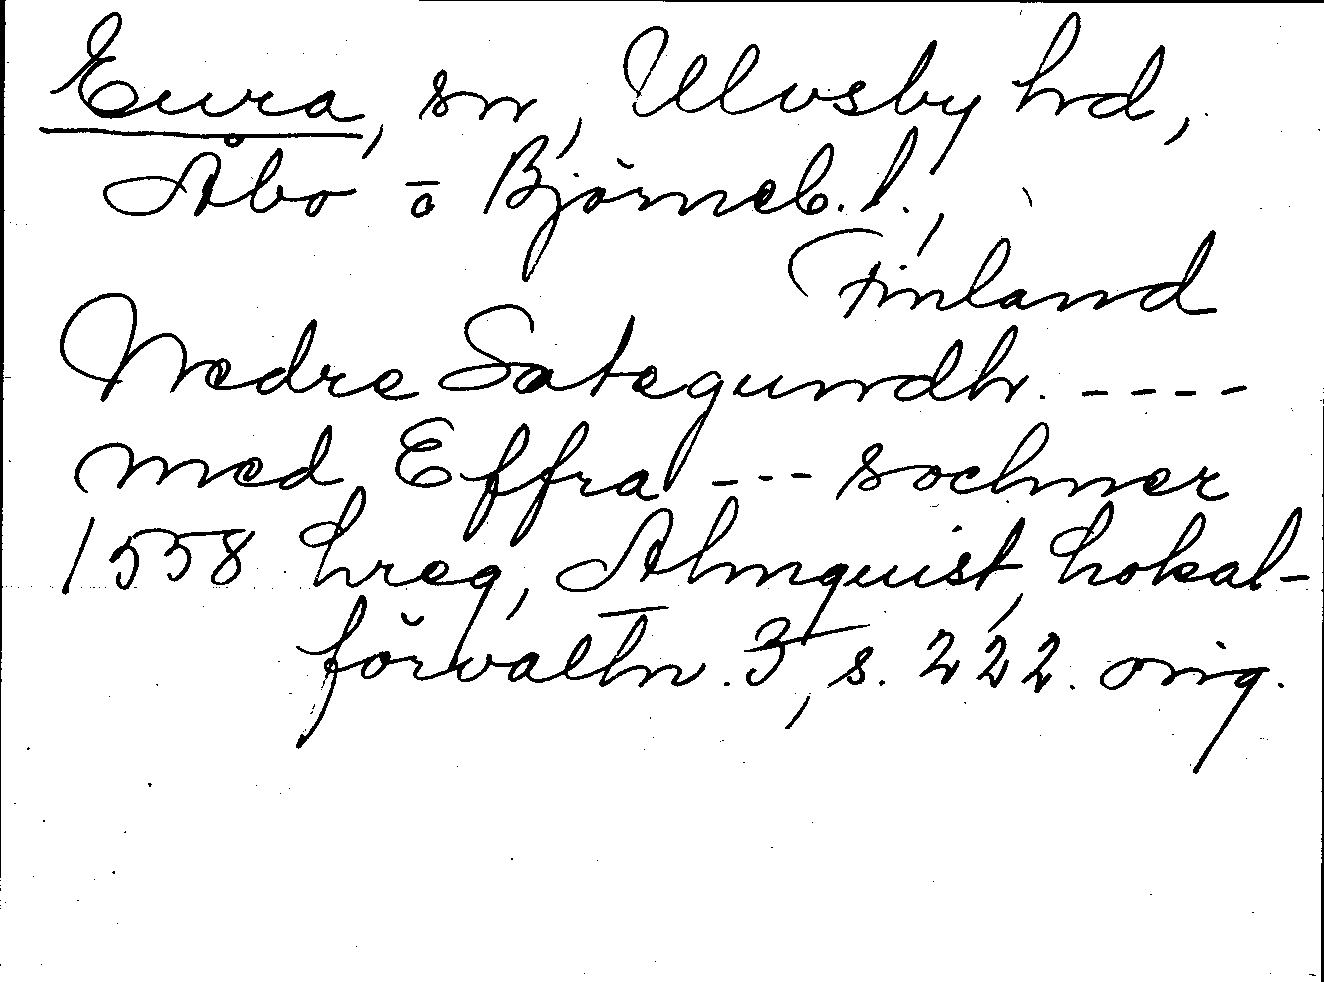 Eura, sn, Ulvsby hd,
Åbo o Björneb. l.,
Finland
Nedre Sategundh. ----
med Effra --- sochner
1558 hreg, Almquist, Lokal-
förvaltn. 3, s. 222. orig.